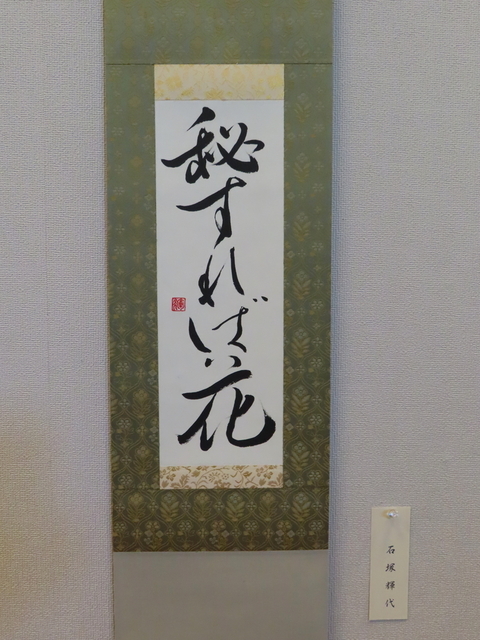 秘すれば花
石塚輝代